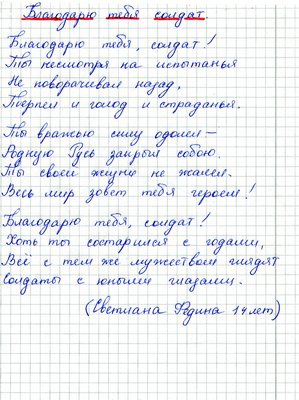 Благодарю тебя солдат
Благодарю тебя, солдат!
Ты несмотря на испытанья
Не поворачивал назад,
Терпел и голод и страданья.
Ты вражью силу одолел –
Родную Русь закрыл собою.
Ты своей жизни не жалел.
Весь мир зовет тебя героем!
Благодарю тебя, солдат!
Хоть ты состарился с годами,
Всё с тем же мужеством глядят
Солдаты с юными глазами.
(Светлана Федина 14 лет)